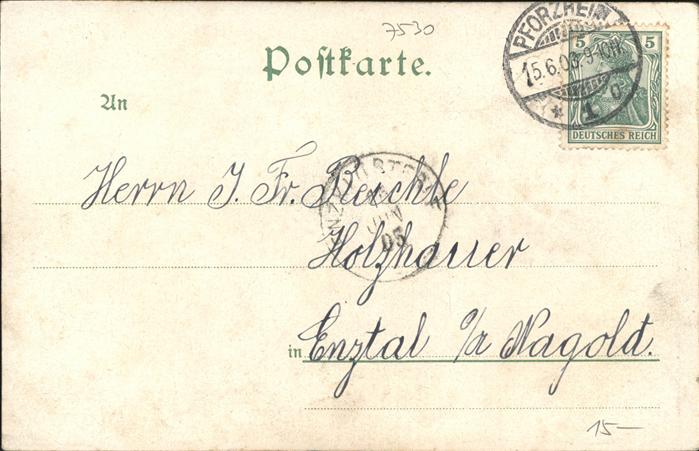 7530
PFORZHEIM
5 5
15.6.03. 9-10N.
* 1 o
DEUTSCHES REICH
Postkarte.
An
Herrn J. Fr. Reichle
JUN
03
Holzhauer
in Enztal o/a Nagold.
15—